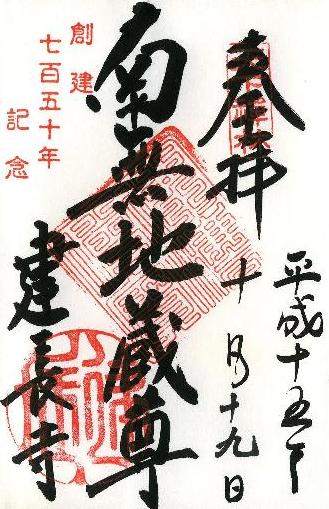 奉拝
平成十五年
十月十九日
南無地蔵尊
建長寺
創建
七百五十年
記念